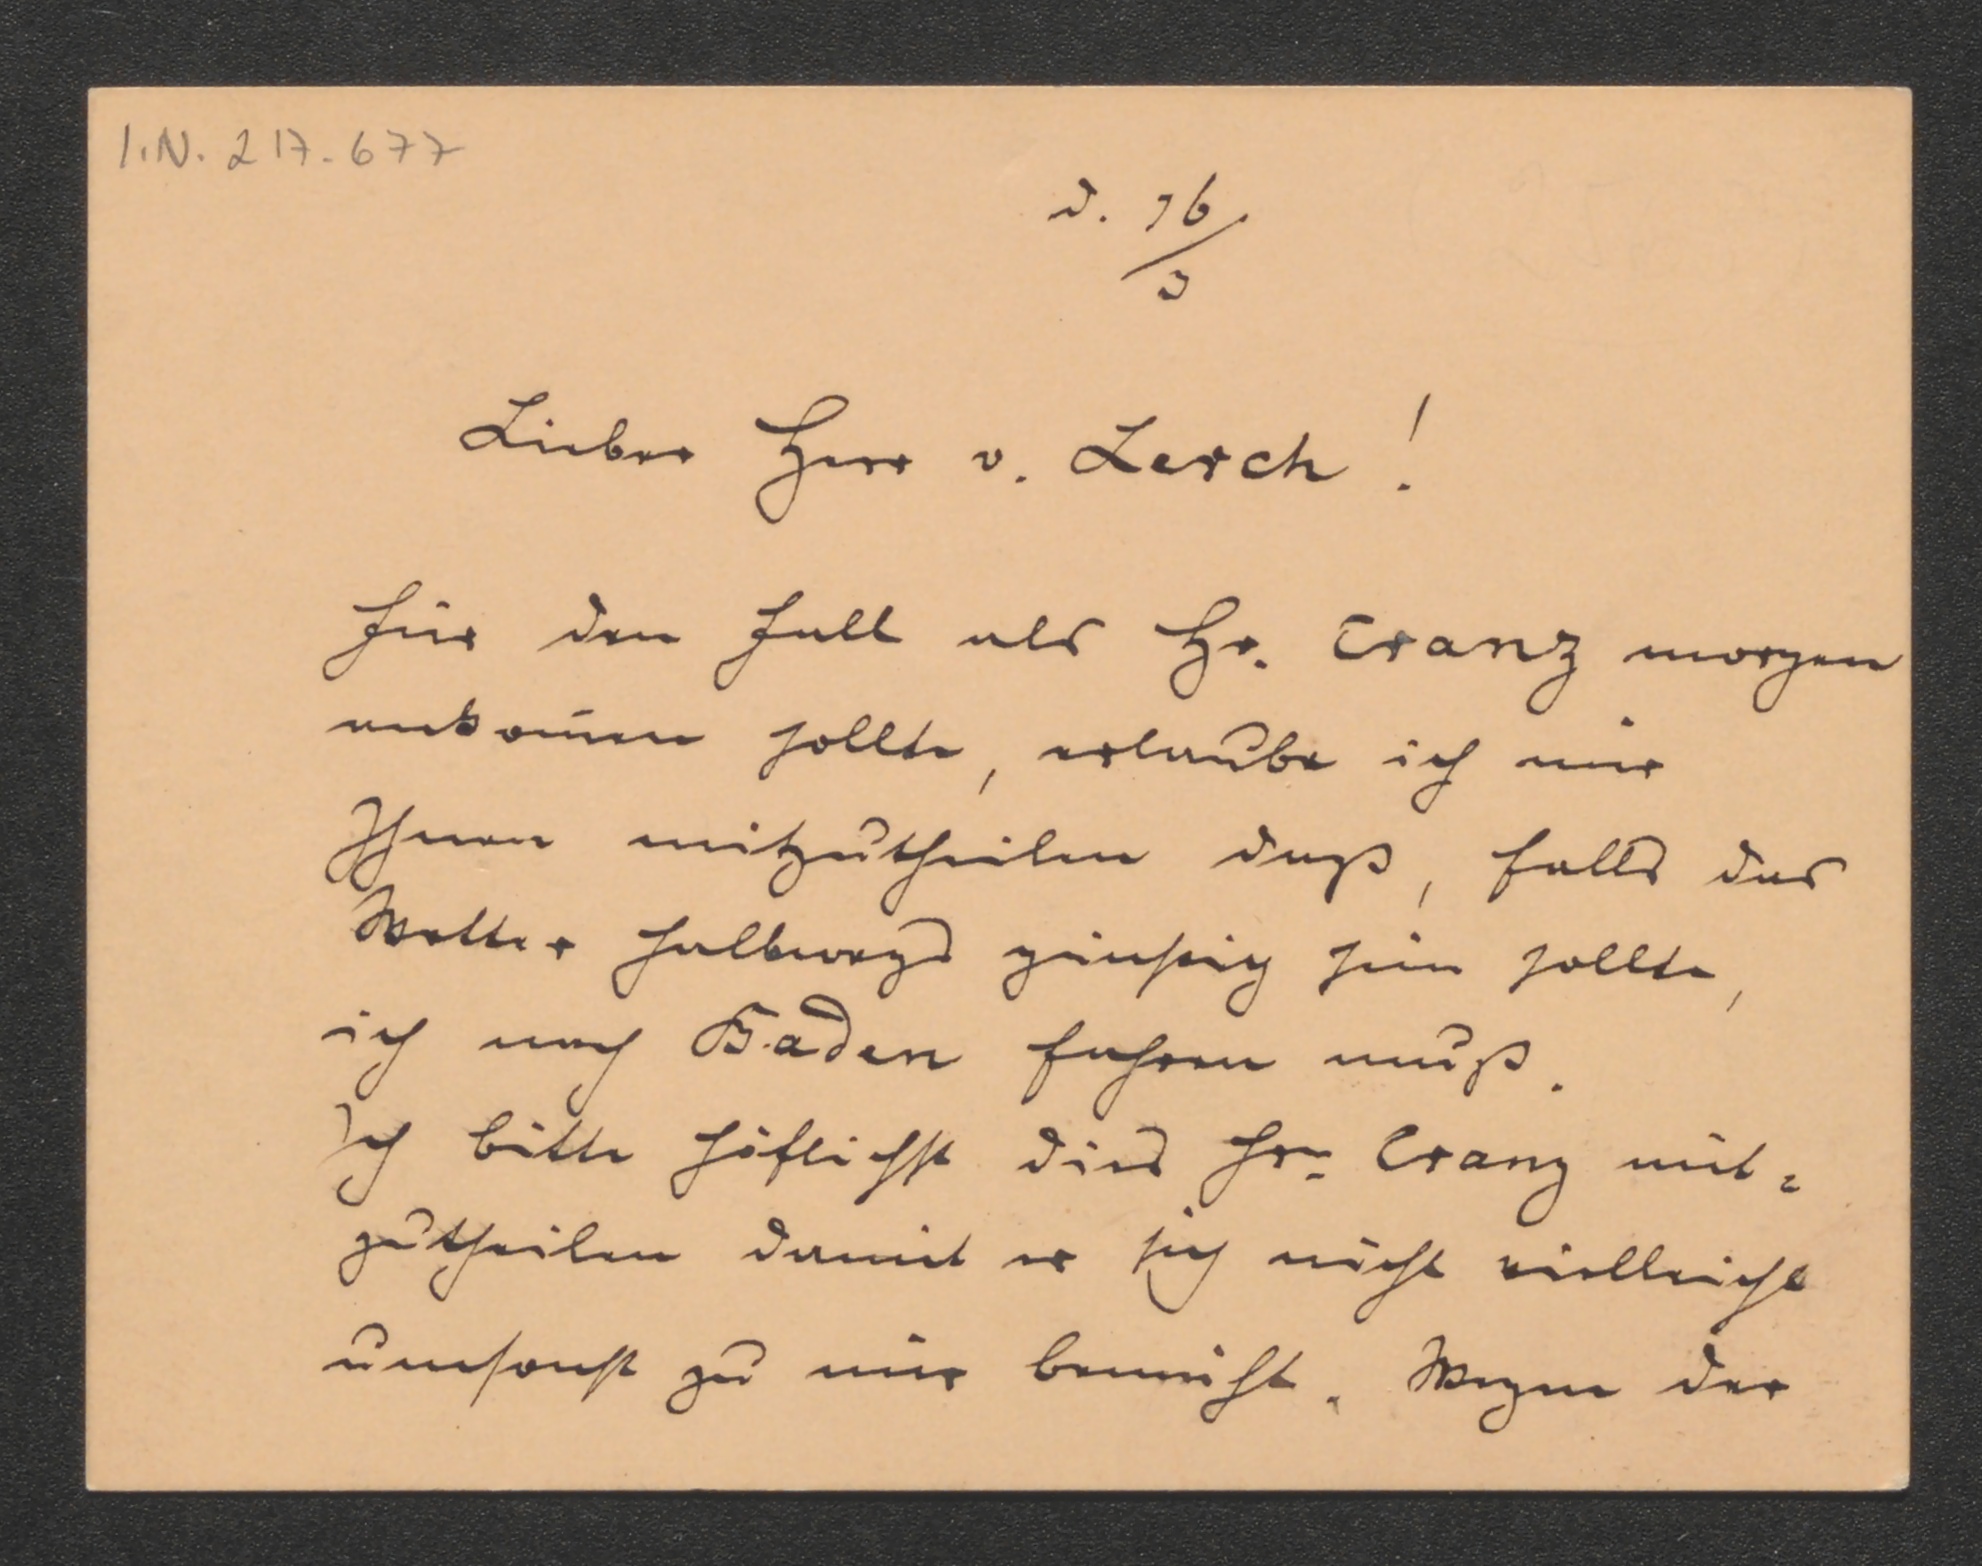 I.N. 217.677
d. 16/3.
Lieber Herr v. Lerch!
Für den Fall als Hr. Cranz morgen
ankom̅en sollte, erlaube ich mir
Ihnen mitzutheilen daß, falls das
Wetter halbwegs günstig sein sollte,
ich nach Baden fahren muß.
Ich bitte höflichst dies Hrn Cranz mit=
zutheilen damit er sich nicht vielleicht
umsonst zu mir bemüht. Wegen der